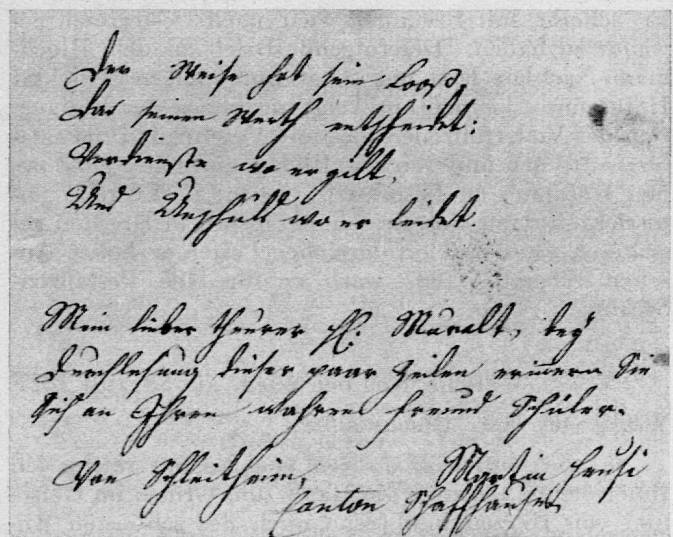 Der Weise hat sein Looß,
Das seinen Werth entscheidet:
Verdienste wo er gilt,
Und Unschuld wo er leidet.
Mein lieber theurer H. Muralt, bey
Durchlesung dieser paar Zeilen erinnern Sie
sich an Ihren wahren Freund Schüler.
Von Schleitheim, Martin Heusi
Canton Schaffhausen